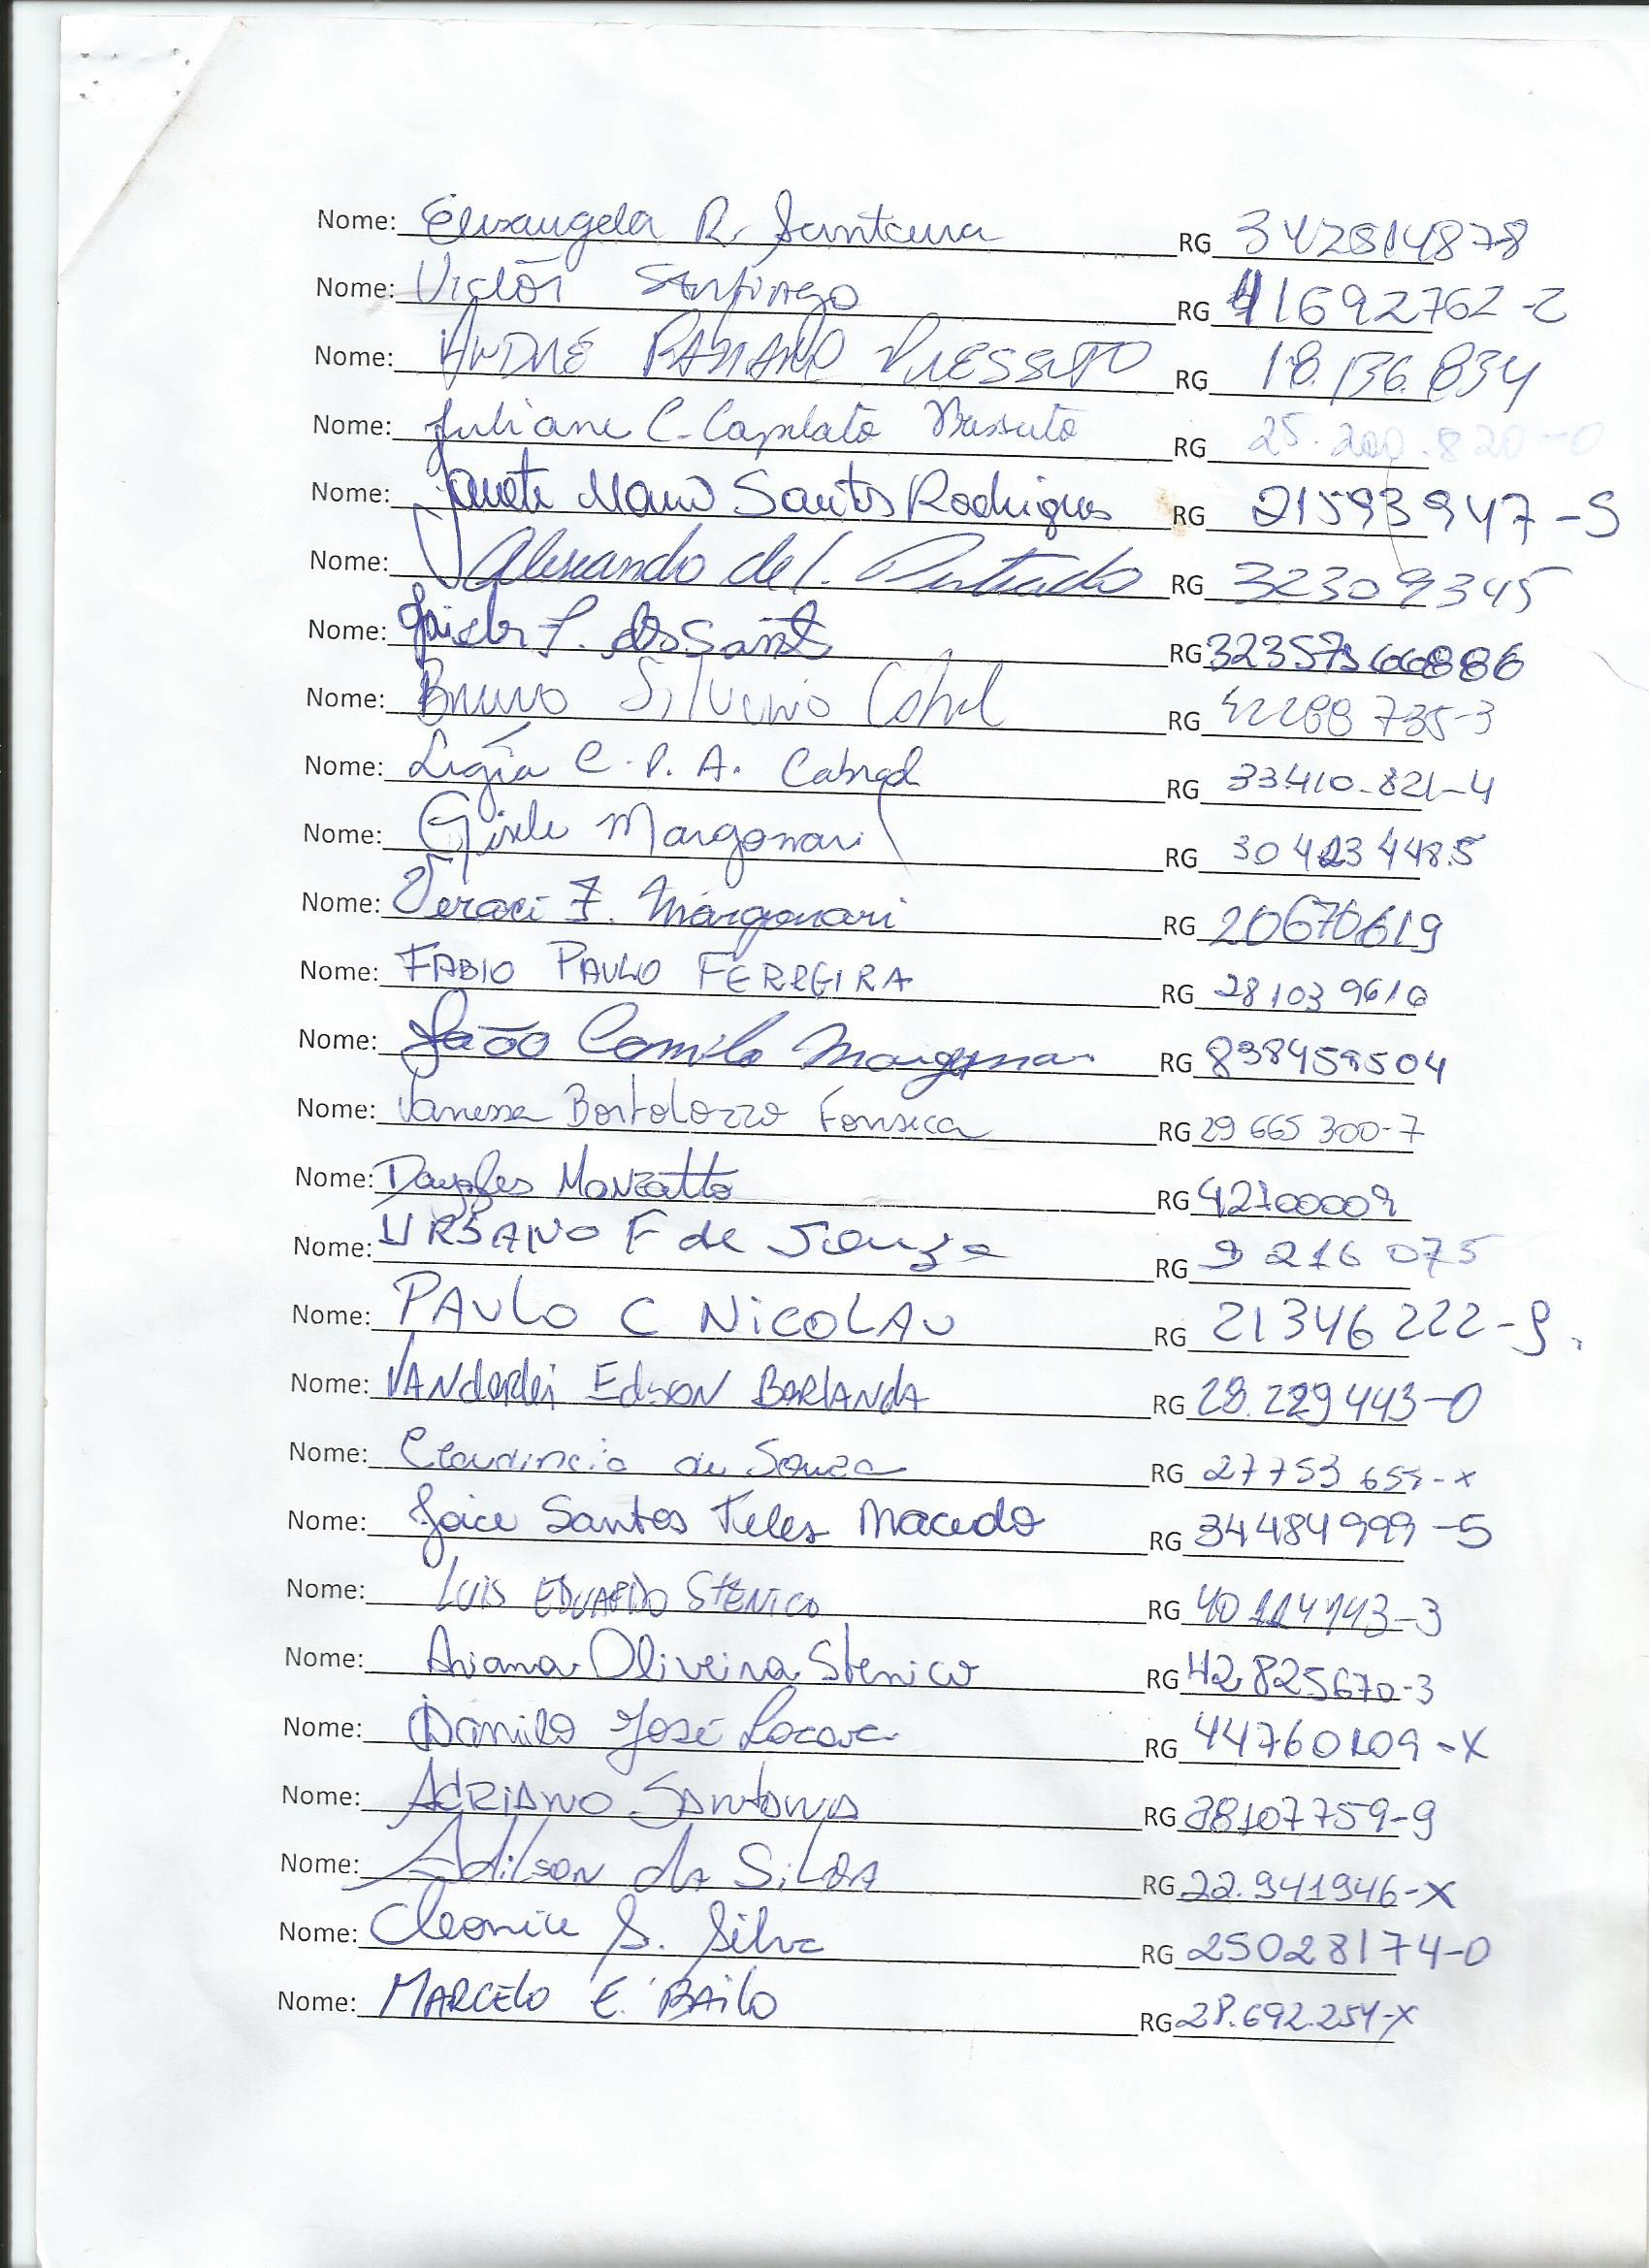 Nome: Elisangela R. Santana RG 342814878
Nome: Victor Santiago RG 41692762-2
Nome: ANDRÉ RG 18.136.834
Nome: Juliane C. Capelato RG 25.200.820-0
Nome: Janete Santos Rodrigues RG 21593947-9
Nome: Alexandro de RG 32309345
Nome: dos Santos RG
Nome: Bruno Silverio Cabral RG 42288735-3
Nome: Ligia C. P. A. Cabral RG 33.410.821-4
Nome: Gisele Margonari RG 30 423 448.5
Nome: Veraci F. Margonari RG 20670619
Nome: FABIO PAULO FERREIRA RG 281039610
Nome: João Camilo Margonari RG 838459504
Nome: Vanessa Bortolozzo Fonseca RG 29 665 300-7
Nome: Douglas Manzatto RG 42700009
Nome: URBANO F de Souza RG 9 216 075
Nome: PAULO C NICOLAU RG 21346222-9
Nome: VANderlei Edson BERLANDA RG 28.229443-0
Nome: de Souza RG 27753 659-x
Nome: Joice Santos Teles Macedo RG 34484999-5
Nome: LUIS EDUARDO STENICO RG 40114143-3
Nome: Ariana Oliveira Stenico RG 42.825670-3
Nome: Danilo José RG 44760109-X
Nome: ADRIANO SANTANA RG 28107759-9
Nome: Adilson da Silva RG 22.941946-X
Nome: Cleonice S. Silva RG 25028174-0
Nome: MARCELO E. BAILO RG 28.692.254-X